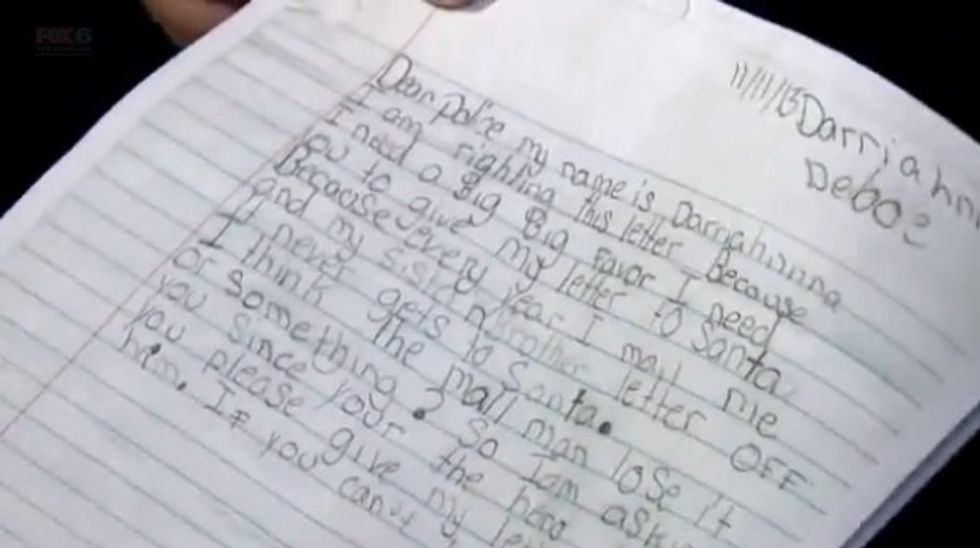 FOX 6
11/11/13 Darriahn
Deboe
Dear Police my name is Darriahnna
I am righting this letter Because
I need a Big Big Favor I need
you to give my letter to Santa
Because every year I mail me
and my sister n brother letter OFF
It never gets to Santa.
I think the mail man lose it
or something? So Iam ask
you since your the hero
you please give my let
him. IF you can't